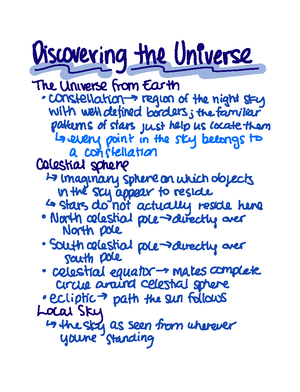 Discovering the Universe
The Universe From Earth
• constellation → region of the night sky
with well defined borders; the familiar
patterns of stars just help us locate them
↳ every point in the sky belongs to
a constellation
Celestial sphere
↳ Imaginary sphere on which objects
in the sky appear to reside
↳ Stars do not actually reside here
• North celestial pole → directly over
North pole
• South celestial pole → directly over
South pole
• celestial equator → makes complete
circle around celestial sphere
• ecliptic → path the sun follows
Local Sky
↳ the sky as seen from wherever
youre standing